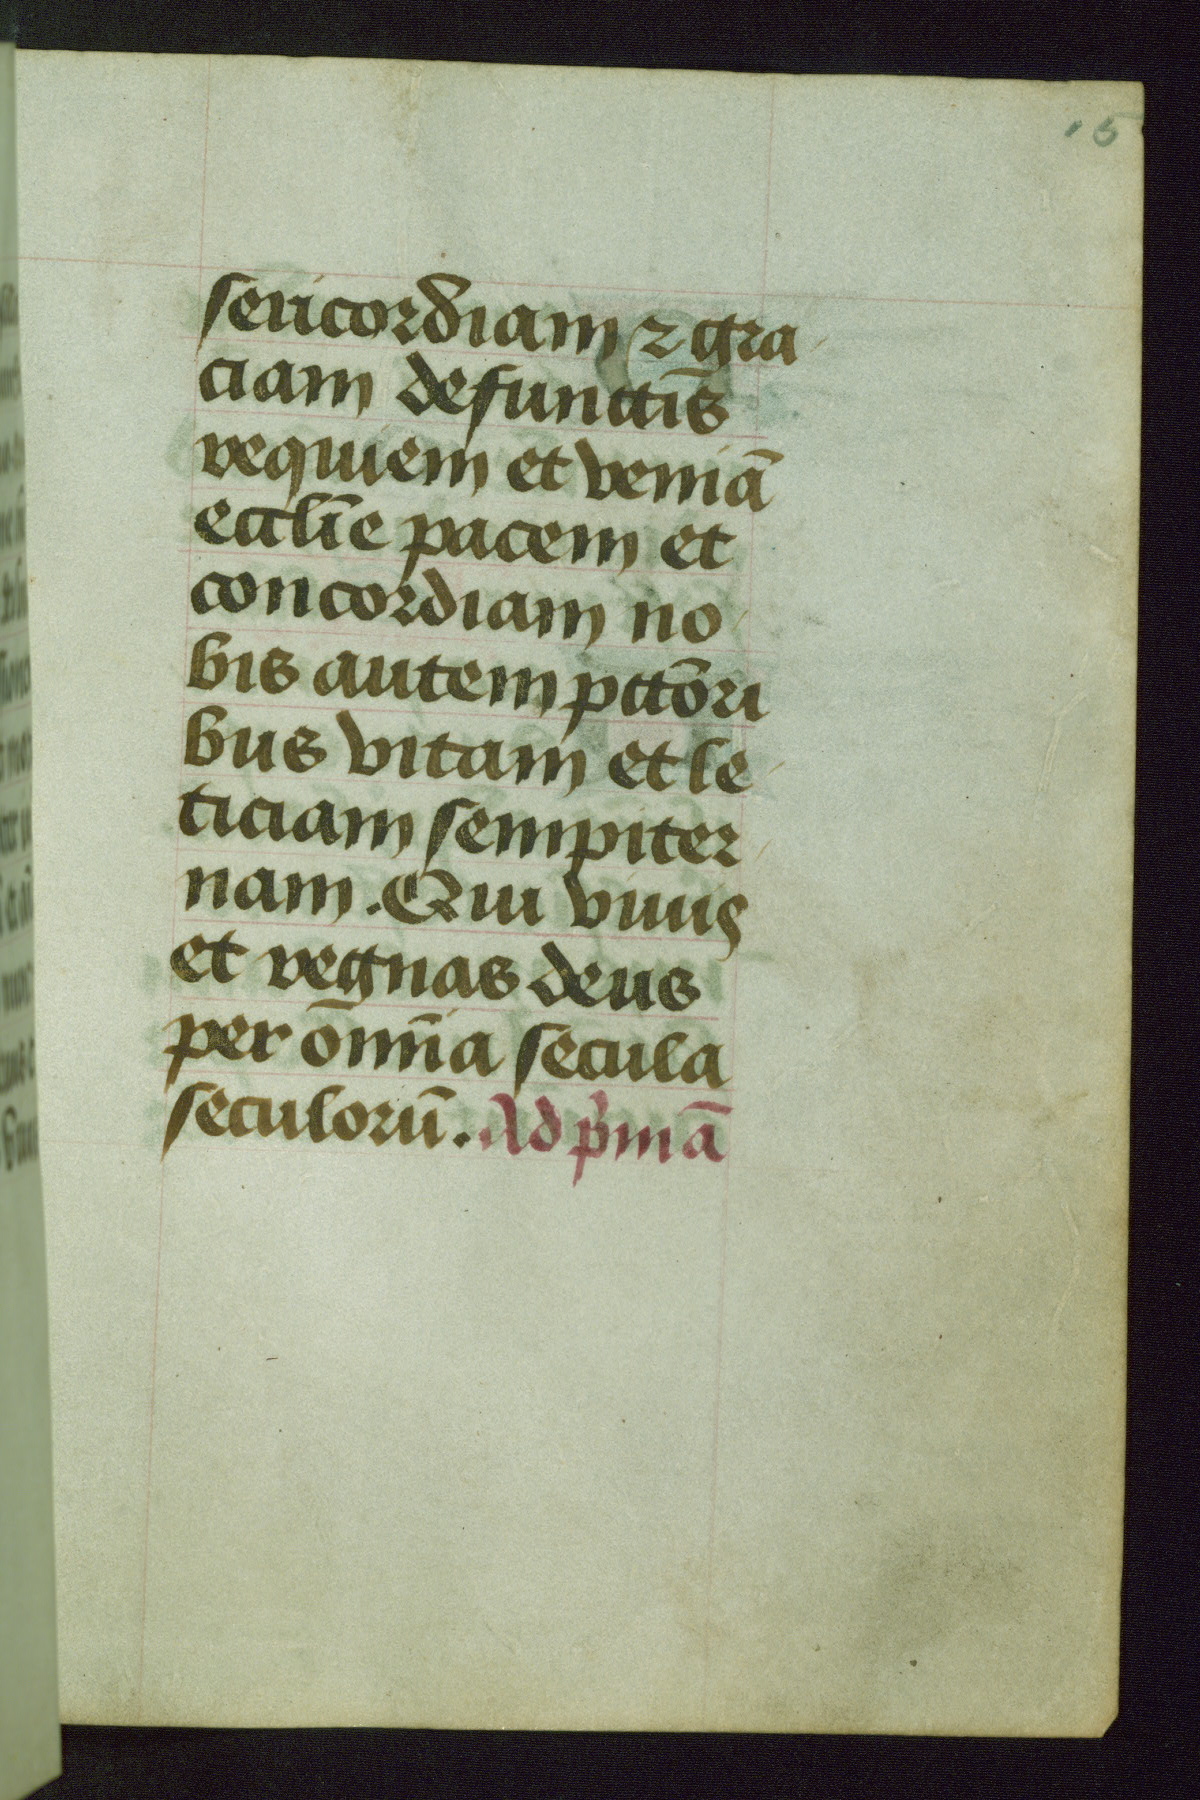 15
sericordiam ⁊ gra
ciam defunctis̄
requiem et veniā
eccl̄ie pacem et
concordiam no
bis autem pctōri
bus vitam et le
ticiam sempiter
nam. Qui viuis
et regnas deus
per ōmīa secula
seculorū. Ad pͥmā